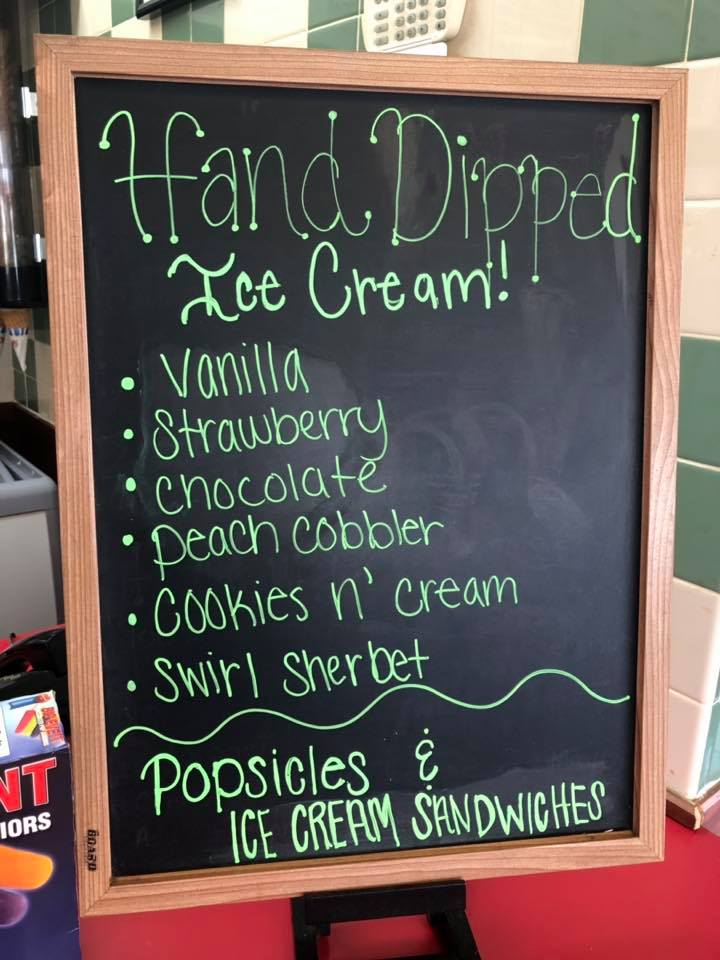 Hand Dipped
Ice Cream!
• Vanilla
• Strawberry
• Chocolate
• Peach Cobbler
• Cookies n' Cream
• Swirl Sherbet
Popsicles &
ICE CREAM SANDWICHES
BOARD
NT
IORS